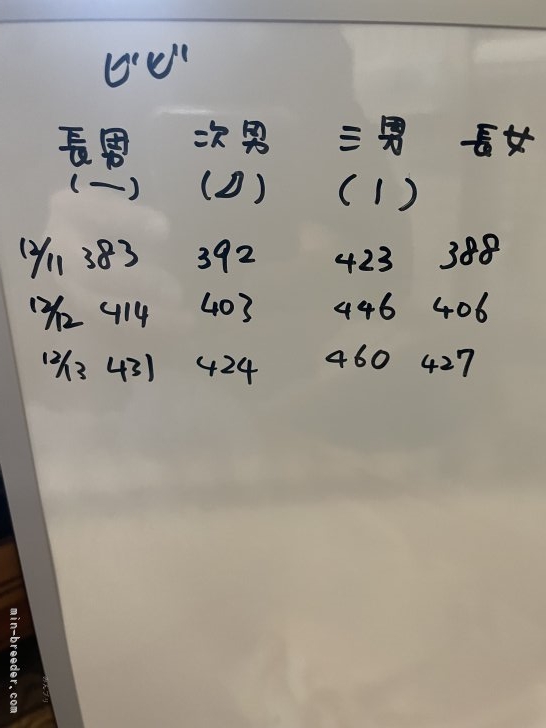 ビビ
長男 次男 三男 長女
(一) ( ) (1)
12/11 383 392 423 388
12/12 414 403 446 406
12/13 431 424 460 427
min-breeder.com